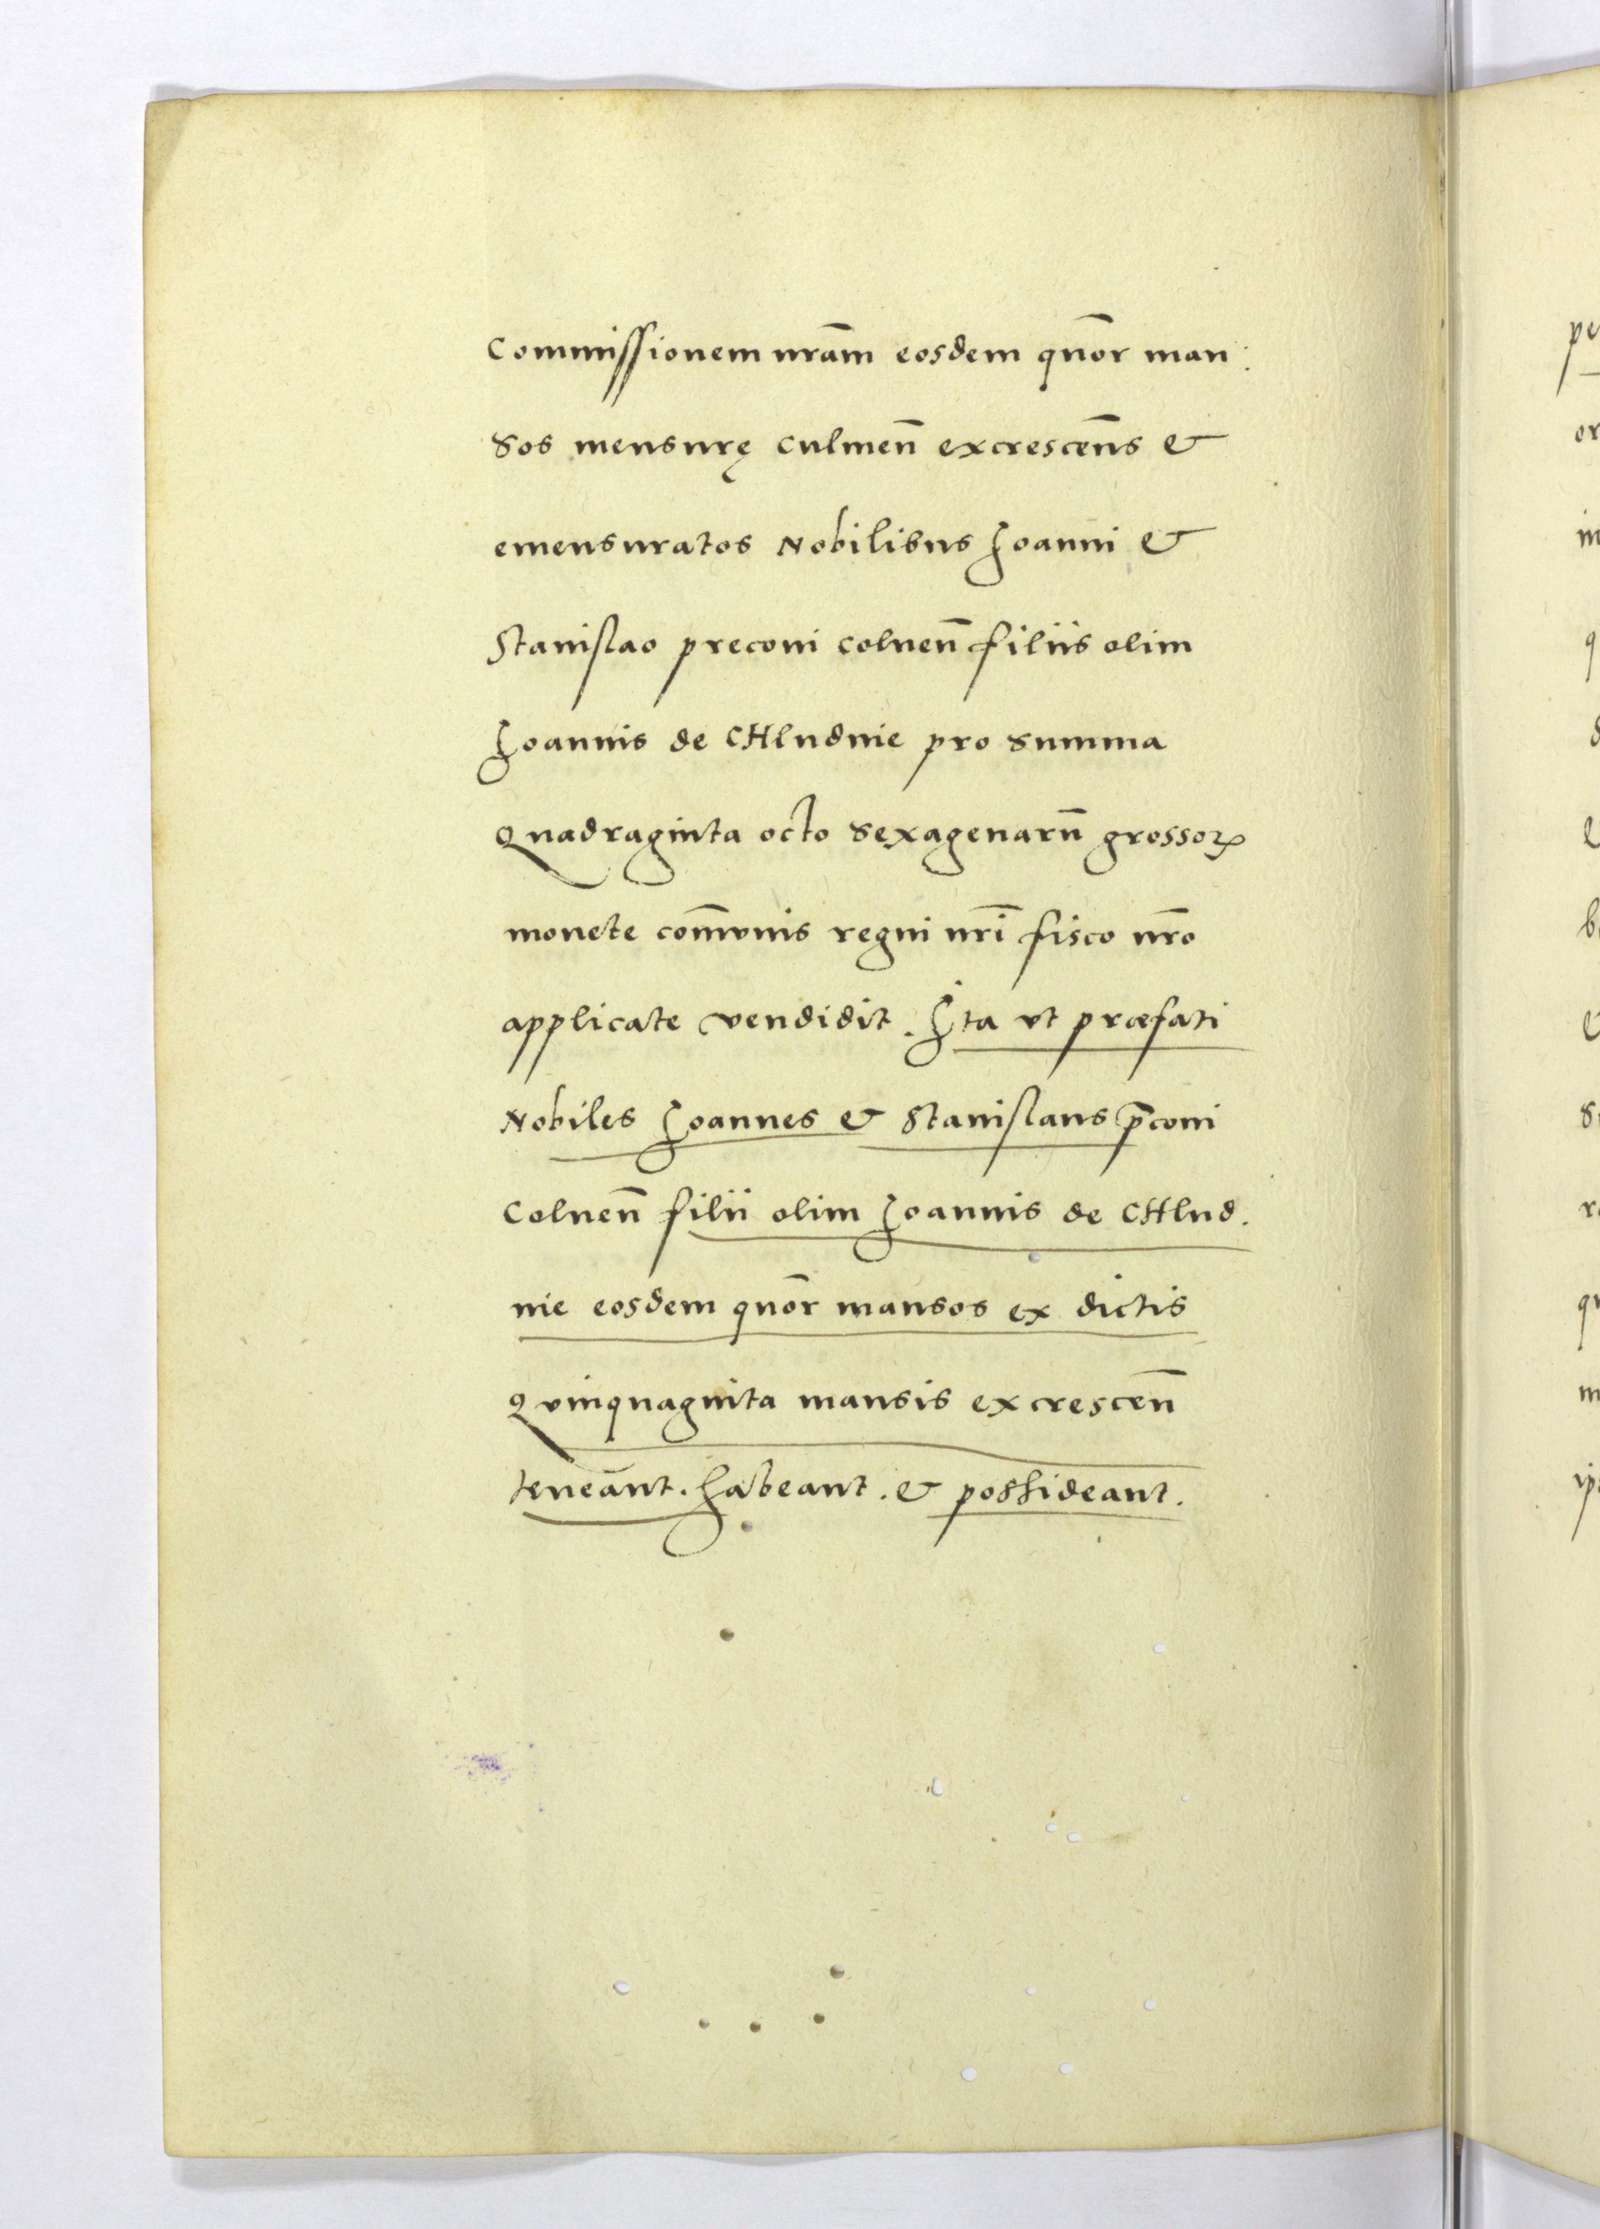 Commissionem nr̄am eosdem qnōr man:
sos mensurę Culmen̄ excrescen̄s &
emensuratos Nobilibus Joanni &
Stanislao preconi Colnen̄ filiis olim
Joannis de CHludnie pro summa
Quadraginta octo sexagenarū grossoꝝ
monete com̄unis regni nr̄i fisco nr̄o
applicate vendidit. Ita vt præfati
Nobiles Joannes & Stanislaus p̄coni
Colnen̄ filii olim Joannis de CHlud.
nie eosdem qnōr mansos ex dictis
Quinquaginta mansis excrescen̄
teneant. habeant. & possideant.